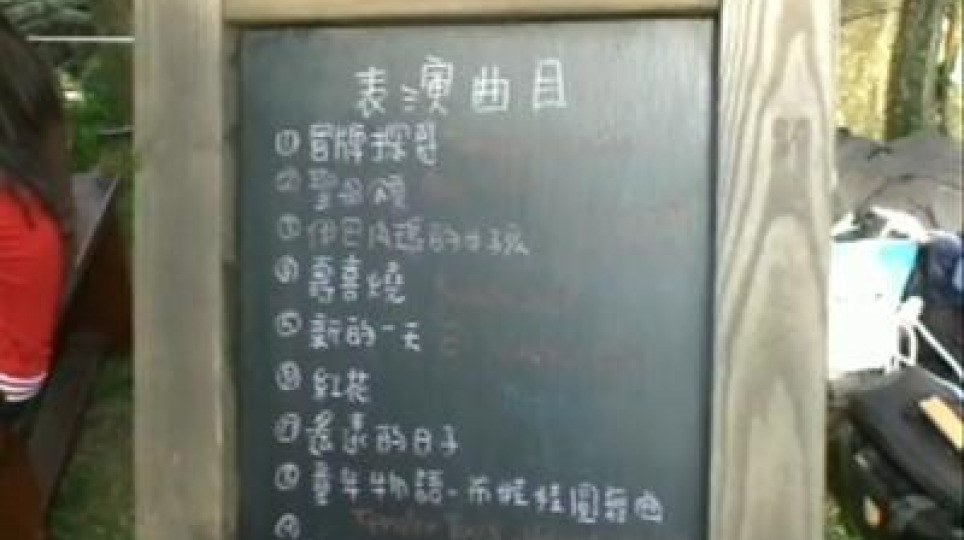 表演曲目
① 冒牌探戈
② 聖母頌
③ 伊巴內瑪的女孩
④ 壽喜燒
⑤ 新的一天
⑥ 紅花
⑦ 遙遠的日子
⑧ 童年物語-布娃娃圓舞曲
⑨